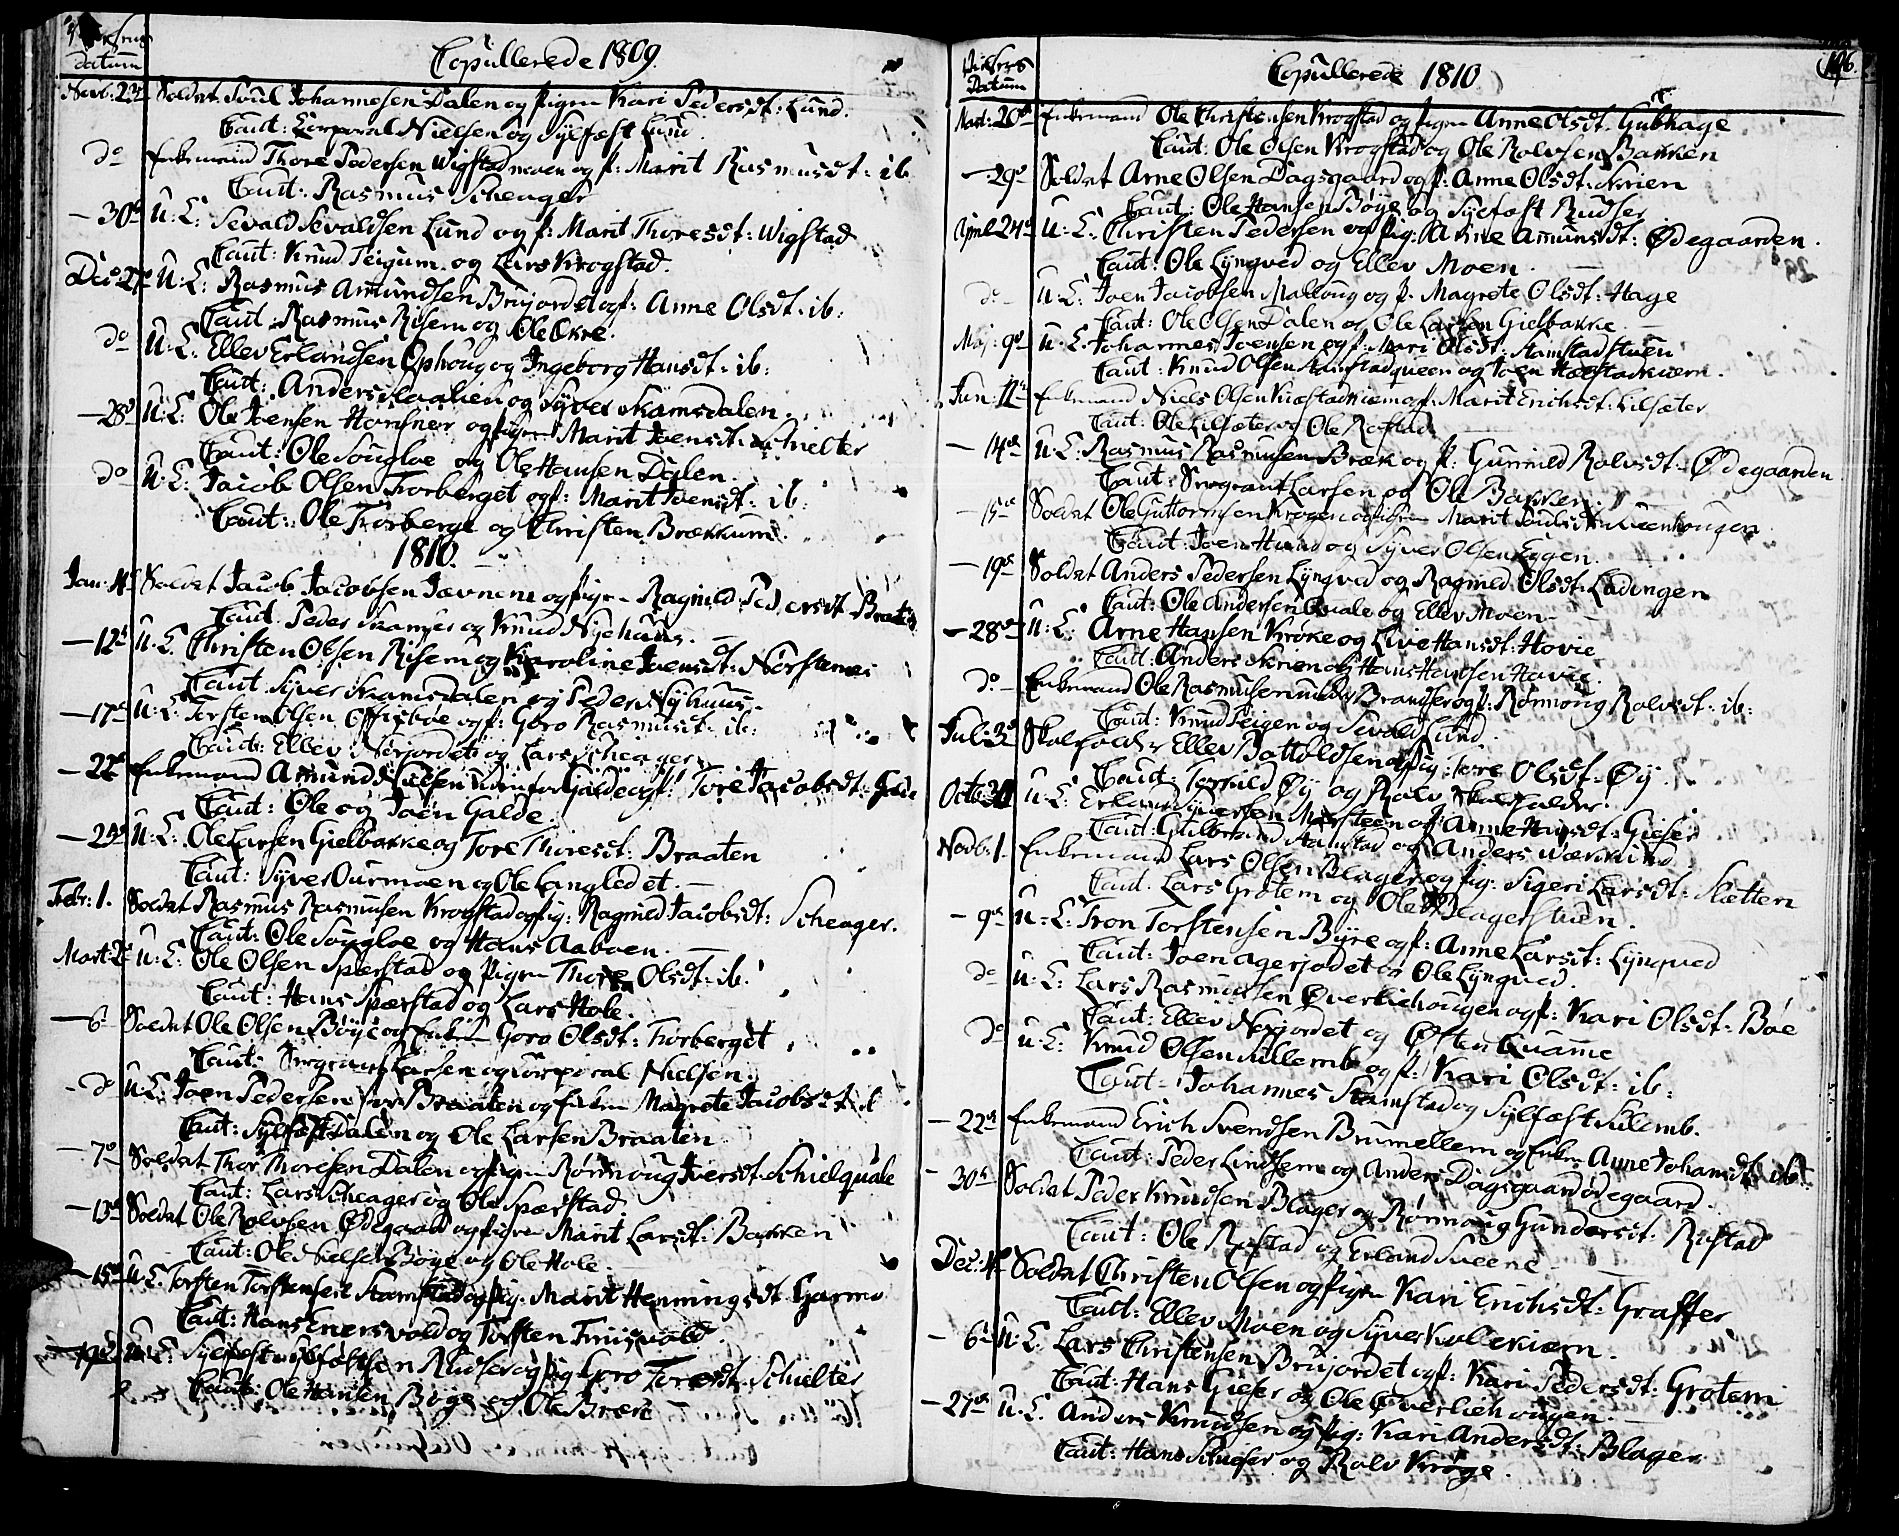 Datum
Copullerede 1809.
Novb: 23de Soldat Poul Johannesen Dalen og Pigen Kari Pedersdt: Lund.
Caut: Corporal Nielsen og Sylfæst Lund.
do Enkemand Thore Pedersen Wigstadmoen og p: Marit Rasmusdt: ib.
Caut: Rasmus Scheager
- 30te U: C: Sevald Sevaldsen Lund og p: Marit Thoresdt: Wigstad
Caut: Knud Teigum og Lars Krogstad.
Dec: 27de U: C: Rasmus Amundsen Brujordet og p: Anne Olsdt: ib:
Caut: Rasmus Risem og Ole Økre.
do U: C: Ellev Erlandsen Ophoug og Ingeborg Hansdt: ib:
Caut: Anders Slaalien og Syver Skamsdalen.
- 28de U: C: Ole Joensen Horsnær og Pigen Marit Joensdt: Schielter
Caut: Ole Sougloe og Ole Hansen Dalen.
do U: C: Jacob Olsen Forberget og p: Marit Joensdt: ib:
Caut: Ole Forberge og Christen Brækkum.
1810.
Jan: 4de Soldat Jacob Jacobsen Jævnem og Pige Ragnild Pedersdt: Braaten
Caut: Peder Skamser og Knud Nyehuus.
- 12te U. C. Christen Olsen Risem og Karoline Joensdt: Nørstenes
Caut: Syver Skamsdalen og Peder Nyhuus.
- 17de U: C: Torsten Olsen Offigsbøe og p: Goro Rasmusdt: ib:
Caut: Ellev Nørjordet og Lars Scheager.
- 22de Enkemand Amund Nielsen Galde og p: Tore Jacobsdt: Galde
Caut: Ole og Joen Galde.
- 25de U: C: Ole Larsen Gielbakke og Tore Thoresdt: Braaten
Caut: Syver Ourmoen og Ole Langledet.
Febr: 1. Soldat Rasmus Rasmusen Krogstad og Pig: Ragnild Jacobsdt: Scheager.
Caut: Ole Sougloe og Hans Aaboen.
Mart: 2de U: C: Ole Olsen Spærstad og Pigen Thore Olsdt: ib.
Caut: Hans Spærstad og Lars Hole.
- 6 Soldat Ole Olsen Bøye og Enken Goro Olsdt: Forberget
Caut: Sergeant Larsen og Corporal Nielsen.
- do U: C: Joen Pedersen Braaten og Enken Magrete Jacobsdt: ib
Caut: Sylfæst Dalen og Ole Larsen Braaten
- 7de Soldat Thor Thoresen Dalen og Pigen Rønnoug Iversdt: Schielquale
Caut: Lars Scheager og Ole Spærstad.
- 13de Soldat Ole Rolvsen Ødegaard og Pigen Marit Larsdt: Bakken
Caut: Ole Nielsen Bøye og Ole Hole.
- 15de U: C: Torsten Torstensen Stamstad og Pig: Marit Henningsdt: Garmo
Caut: Hans Enersvold og Torsten Friisvold.
- 19de U: C: Sylfæst Sylfæstsen Rudser og Pig: Goro Toresdt: Schielter
Caut: Ole Hansen Bøye og Ole Bræk
Datum
Copullerede 1810
196.
Mart: 20de Enkemand Ole Christensen Krogstad og Pigen Anne Olsdt: Gubhage
Caut: Ole Olsen Krogstad og Ole Rolvsen Bakken
- 29de Soldat Arne Olsen Dagsgaard og p: Anne Olsdt: Skrien
Caut: Ole Hansen Bøye og Sylfæst Rudser
April 24de U: C: Christen Pedersen og Pig: Anne Amunsdt: Ødegaarden.
Caut: Ole Lyngved og Ellev Moen.
do - U: C: Joen Jacobsen Malloug og p. Magrete Olsdt: Hage
Caut: Ole Olsen Dalen og Ole Larsen Gielbakke.
Maj: 9de U: C: Johannes Joensen og p: Mari Olsdt: Stamstadstuen
Caut: Knud Olsen Stamstadqueen og Joen
Jun: 12te Enkemand Niels Olsen og p: Marit Erichsdt: Lilsæter
Caut: Ole Lilsæter og Ole Rostad
- 14de U: C: Rasmus Rasmusen Bræk og p: Gunnild Rolvsdt: Ødegaarden
Caut: Sergeant Larsen og Ole Bakken.
- 15de Soldat Ole Guttormsen Krogen og Pigen Marit Poulsdt:
Caut: Joen og Syver Olsen Eggen.
- 19de Soldat Anders Pedersen Lyngved og Ragnild Olsdt: Ladingen
Caut: Ole Andersen Quale og Ellev Moen
- 28de U: C: Arne Hansen Krøke og Live Hansdt: Hovie
Caut: Anders Skrien og Hans Hansen Hovie.
do - Enkemand Ole Rasmusen Brandser og p: Rønnong Rolvsdt: ib:
Caut: Knud Teigen og Sevald Lund.
Jul: 3de Skolholder Ellev Botoldsen og Pig: Tore Olsdt: Øy
Caut: Torkild Øy og Rolv Skolholder.
Octb: 30 U: C: Erland Syversen og p: Anne Hansdt: Gieser
Caut: Gulbrand Stamstad og Anders
Novb: 1. Enkemand Lars Olsen Blager og Pig: Sigeri Larsdt: Sletten
Caut. Lars Grotem og Ole Blagerstuen.
- 9de U: C: Tron Torstensen Byre og p: Anne Larsdt: Lyngved
Caut: Joen Agerjodet og Ole Lyngved.
do U: C: Lars Rasmusen Øverliehougen og p: Kari Olsdt: Bøe
Caut: Ellev Nørjordet og Østen Quamme
do U: C: Knud Olsen Sullemb og p: Kari Olsdt: ib:
Caut: Johannes Stamstad og Sylfæst Sulemb.
- 22de Enkemand Erich Svendsen Brumellem og Enken Anne Johansdt: ib:
Caut: Peder Lindsem og Anders Dagsgaardødegaard.
- 30te Soldat Peder Knudsen Blager og Rønnoug Gundersdt: Rustad
Caut: Ole Rustad og Erland Sveene.
Dec: 4de Soldat Christen Olsen og Pigen Kari Erichsdt: Graffer
Caut: Ellev Moen og Syver
- 6te U: C. Lars Christensen Brujordet og p: Kari Pedersdt: Grotem
Caut: Hans Gieser og Ole Øverliehougen.
- 27de U: C. Anders Knudsen og Pig: Kari Andersdt: Blager
Caut: Hans Rudser og Rolv Krøge.